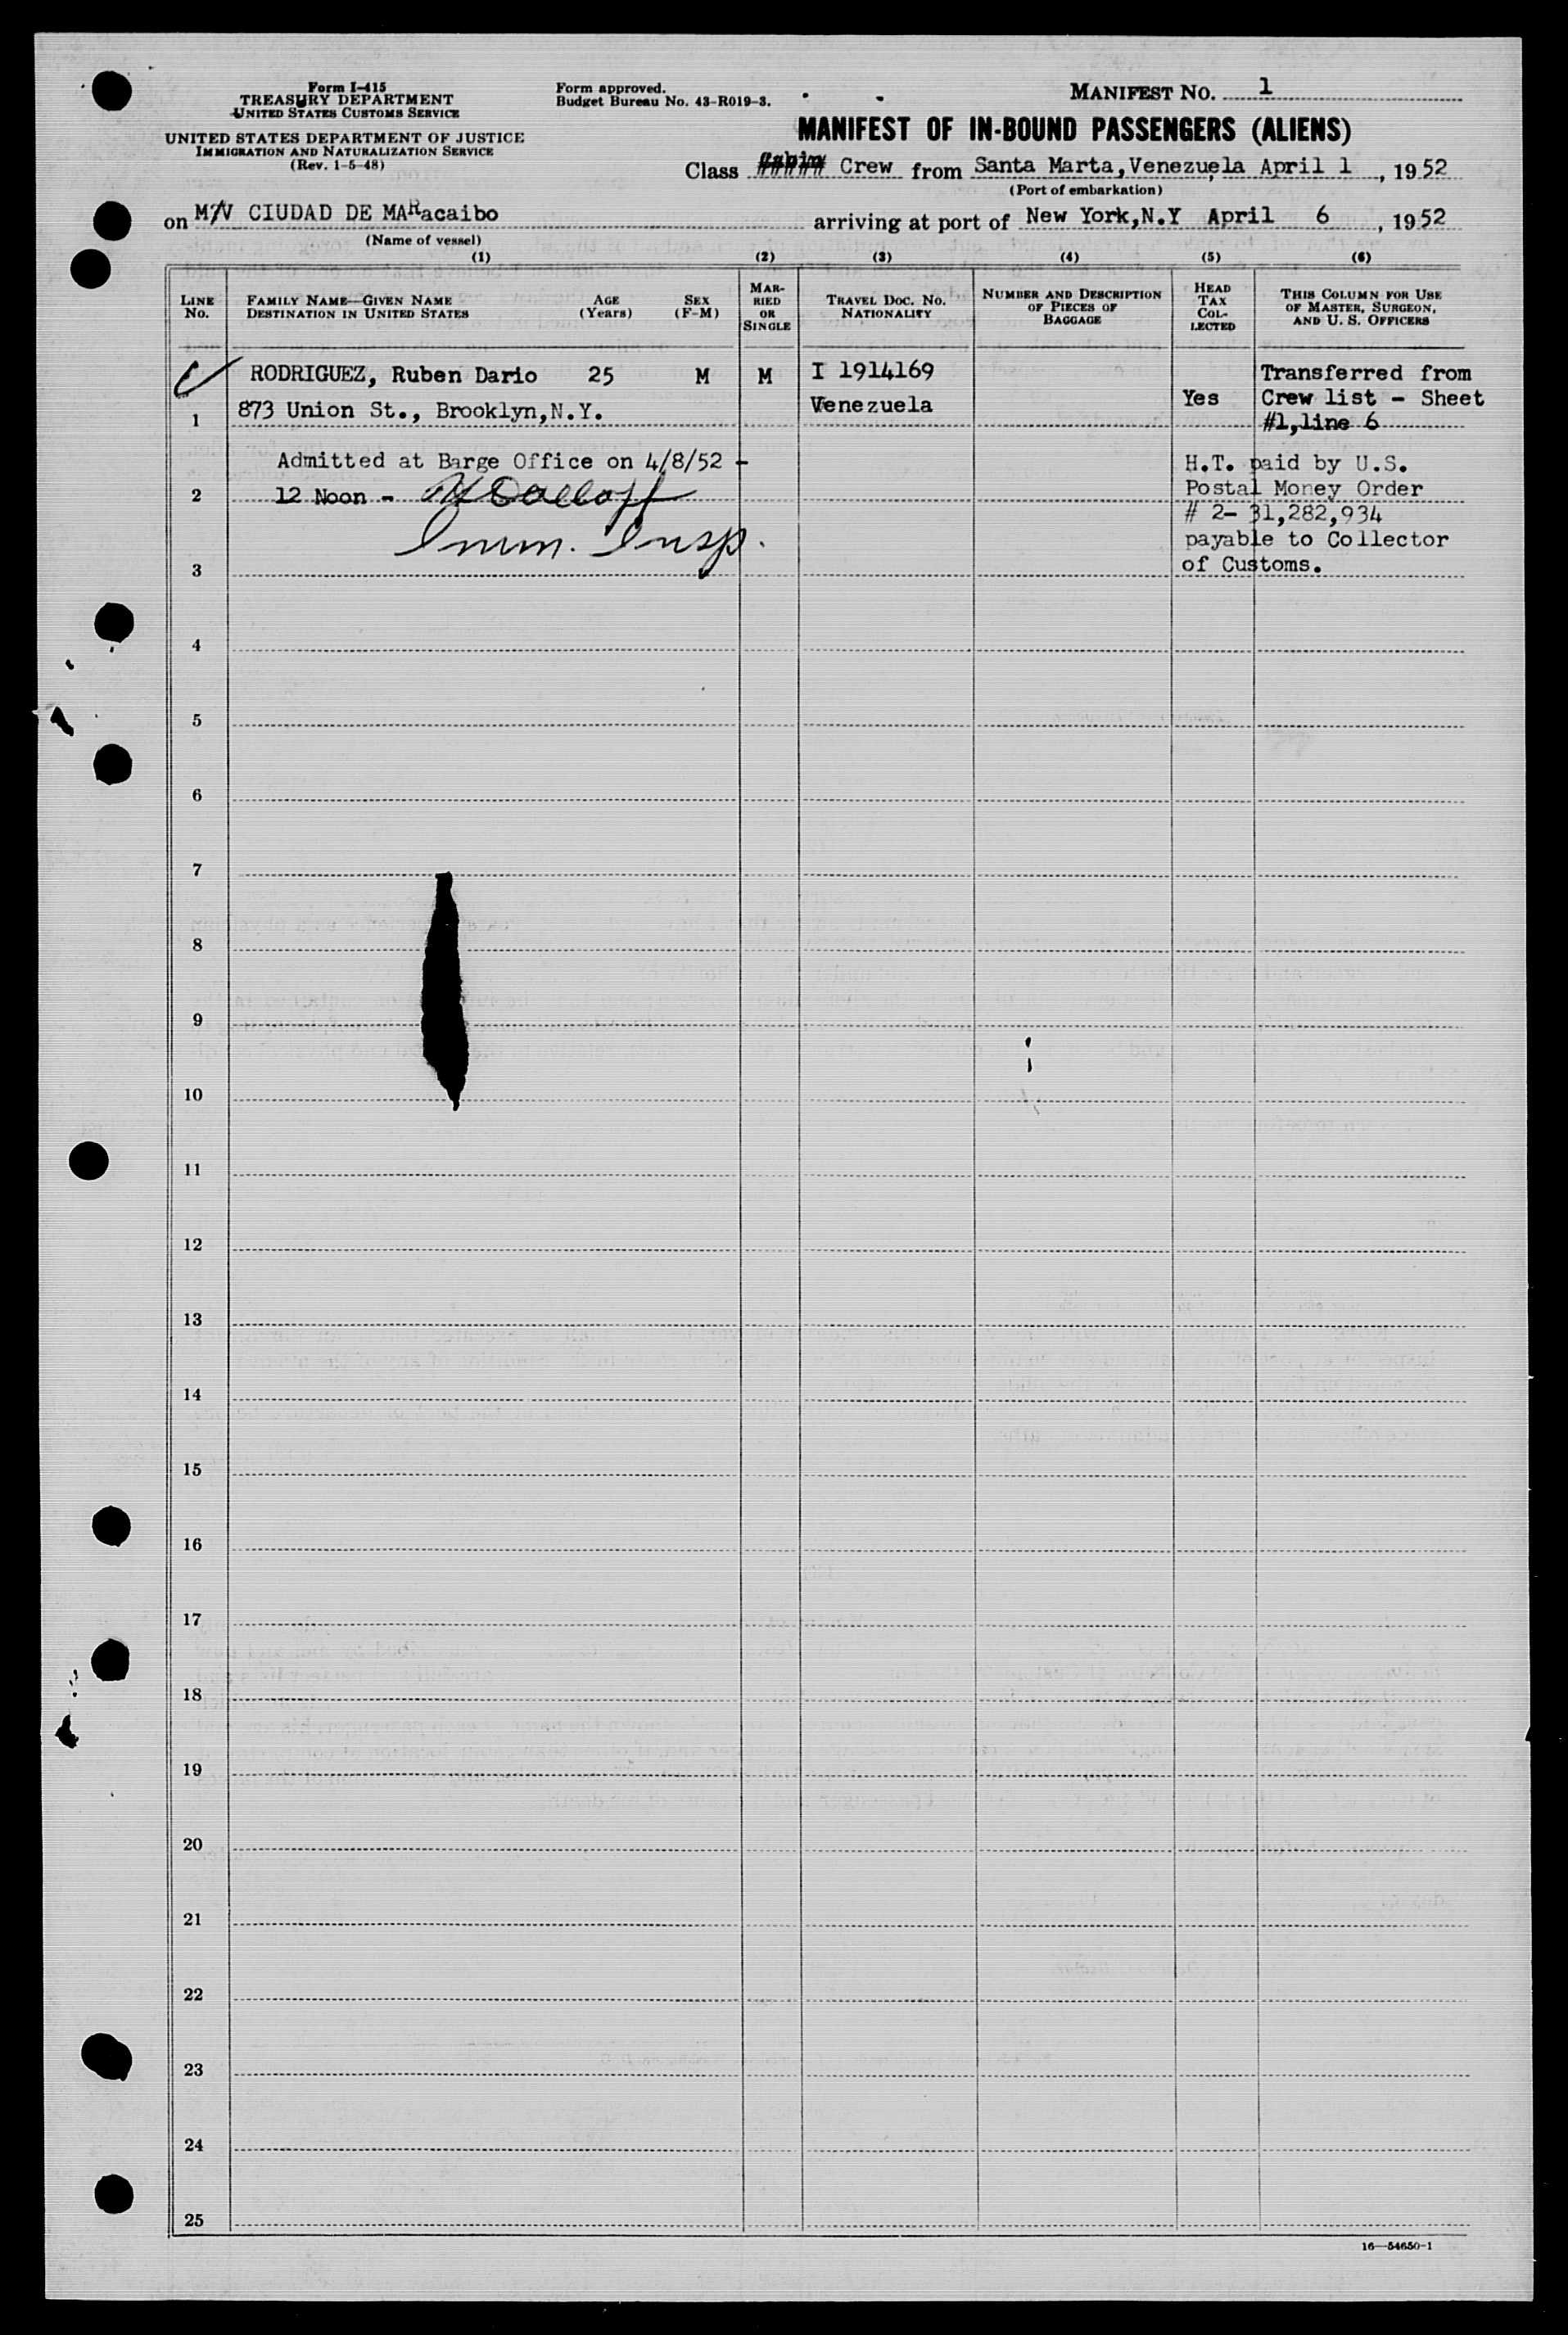 Form I-415
TREASURY DEPARTMENT
UNITED STATES CUSTOMS SERVICE
UNITED STATES DEPARTMENT OF JUSTICE
IMMIGRATION AND NATURALIZATION SERVICE
(Rev. 1-5-48)
Form approved.
Budget Bureau No. 43-R019-3.
MANIFEST NO. 1
MANIFEST OF IN-BOUND PASSENGERS (ALIENS)
Class Cabin Crew from Santa Marta, Venezuela April 1, 1952
(Port of embarkation)
on M/V CIUDAD DE MARacaibo arriving at port of New York,N.Y April 6, 1952
(Name of vessel)
(1) (2) (3) (4) (5) (6)
LINE No. FAMILY NAME—GIVEN NAME DESTINATION IN UNITED STATES AGE (Years) SEX (F-M) MARRIED OR SINGLE TRAVEL DOC. NO. NATIONALITY NUMBER AND DESCRIPTION OF PIECES OF BAGGAGE HEAD TAX COLLECTED THIS COLUMN FOR USE OF MASTER, SURGEON, AND U. S. OFFICERS
RODRIGUEZ, Ruben Dario 25 M M I 1914169 Transferred from
1 873 Union St., Brooklyn,N.Y. Venezuela Yes Crew list - Sheet
#1,line 6
Admitted at Barge Office on 4/8/52 - H.T. paid by U.S.
2 12 Noon - Postal Money Order
# 2- 31,282,934
Imm. Insp. payable to Collector
3 of Customs.
4
5
6
7
8
9
10
11
12
13
14
15
16
17
18
19
20
21
22
23
24
25
16—54650-1